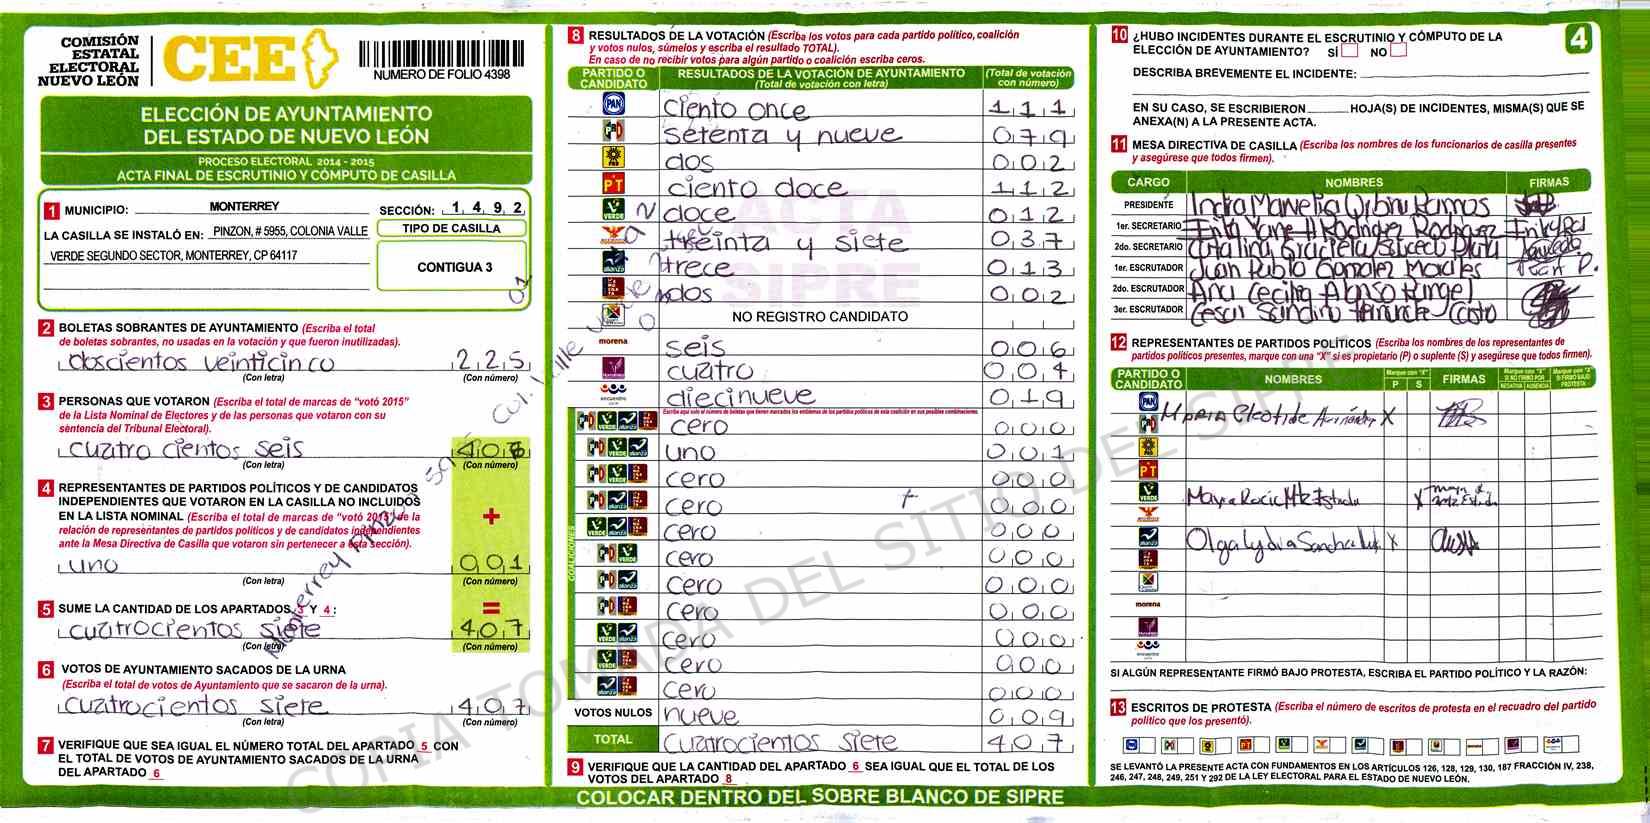 COMISIÓN
ESTATAL
ELECTORAL
NUEVO LEÓN
CEE
NUMERO DE FOLIO 4398
ELECCIÓN DE AYUNTAMIENTO
DEL ESTADO DE NUEVO LEÓN
PROCESO ELECTORAL 2014 - 2015
ACTA FINAL DE ESCRUTINIO Y CÓMPUTO DE CASILLA
1 MUNICIPIO: MONTERREY SECCIÓN: 1 4 9 2
LA CASILLA SE INSTALÓ EN: PINZON, # 5955, COLONIA VALLE
VERDE SEGUNDO SECTOR, MONTERREY, CP 64117
TIPO DE CASILLA
CONTIGUA 3
2 BOLETAS SOBRANTES DE AYUNTAMIENTO (Escriba el total
de boletas sobrantes, no usadas en la votación y que fueron inutilizadas).
doscientos veinticinco 2 2 5
(Con letra) (Con número)
3 PERSONAS QUE VOTARON (Escriba el total de marcas de "votó 2015"
de la Lista Nominal de Electores y de las personas que votaron con su
sentencia del Tribunal Electoral).
cuatro cientos seis 4 0 6
(Con letra) (Con número)
4 REPRESENTANTES DE PARTIDOS POLÍTICOS Y DE CANDIDATOS
INDEPENDIENTES QUE VOTARON EN LA CASILLA NO INCLUIDOS
EN LA LISTA NOMINAL (Escriba el total de marcas de "votó 2015" de la
relación de representantes de partidos políticos y de candidatos independientes
ante la Mesa Directiva de Casilla que votaron sin pertenecer a ésta sección).
+
uno 0 0 1
(Con letra) (Con número)
5 SUME LA CANTIDAD DE LOS APARTADOS 3 Y 4 :
=
cuatrocientos siete 4 0 7
(Con letra) (Con número)
6 VOTOS DE AYUNTAMIENTO SACADOS DE LA URNA
(Escriba el total de votos de Ayuntamiento que se sacaron de la urna).
cuatrocientos siete 4 0 7
(Con letra) (Con número)
7 VERIFIQUE QUE SEA IGUAL EL NÚMERO TOTAL DEL APARTADO 5 CON
EL TOTAL DE VOTOS DE AYUNTAMIENTO SACADOS DE LA URNA
DEL APARTADO 6
8 RESULTADOS DE LA VOTACIÓN (Escriba los votos para cada partido político, coalición
y votos nulos, súmelos y escriba el resultado TOTAL).
En caso de no recibir votos para algún partido o coalición escriba ceros.
PARTIDO O CANDIDATO RESULTADOS DE LA VOTACIÓN DE AYUNTAMIENTO (Total de votación con letra) (Total de votación con número)
PAN ciento once 1 1 1
PRI setenta y nueve 0 7 9
PRD dos 0 0 2
PT ciento doce 1 1 2
VERDE doce 0 1 2
treinta y siete 0 3 7
alianza trece 0 1 3
dos 0 0 2
NO REGISTRO CANDIDATO
morena seis 0 0 6
cuatro 0 0 4
encuentro diecinueve 0 1 9
COALICIONES
Escriba aquí solo el número de boletas que tienen marcados los emblemas de los partidos políticos de esta coalición en sus posibles combinaciones.
cero 0 0 0
uno 0 0 1
cero 0 0 0
cero 0 0 0
cero 0 0 0
cero 0 0 0
cero 0 0 0
cero 0 0 0
cero 0 0 0
cero 0 0 0
cero 0 0 0
VOTOS NULOS nueve 0 0 9
TOTAL cuatrocientos siete 4 0 7
9 VERIFIQUE QUE LA CANTIDAD DEL APARTADO 6 SEA IGUAL QUE EL TOTAL DE LOS
VOTOS DEL APARTADO 8
COLOCAR DENTRO DEL SOBRE BLANCO DE SIPRE
ACTA
SIPRE
COPIA TOMADA DEL SITIO DEL SIPRE
4
10 ¿HUBO INCIDENTES DURANTE EL ESCRUTINIO Y CÓMPUTO DE LA
ELECCIÓN DE AYUNTAMIENTO? SÍ NO
DESCRIBA BREVEMENTE EL INCIDENTE:
EN SU CASO, SE ESCRIBIERON HOJA(S) DE INCIDENTES, MISMA(S) QUE SE
ANEXA(N) A LA PRESENTE ACTA.
11 MESA DIRECTIVA DE CASILLA (Escriba los nombres de los funcionarios de casilla presentes
y asegúrese que todos firmen).
CARGO NOMBRES FIRMAS
PRESIDENTE Ramos
1er. SECRETARIO Rodriguez Rodriguez
2do. SECRETARIO Graciela
1er. ESCRUTADOR Juan Pablo Gonzalez Morales Juan P.
2do. ESCRUTADOR Ana Cecilia Alonso Rangel
3er. ESCRUTADOR Cesar Castro
12 REPRESENTANTES DE PARTIDOS POLÍTICOS (Escriba los nombres de los representantes de
partidos políticos presentes, marque con una "X" si es propietario (P) o suplente (S) y asegúrese que todos firmen).
PARTIDO O CANDIDATO NOMBRES Marque con "X" P S FIRMAS Marque con "X" SI NO FIRMÓ POR NEGATIVA AUSENCIA Marque con "X" SI FIRMÓ BAJO PROTESTA
PAN
Maria Cleotilde X
PRD
PT
VERDE Mayra Rocio Mtz Estrada X
alianza Olga Lydia Sanchez X
morena
encuentro
SI ALGÚN REPRESENTANTE FIRMÓ BAJO PROTESTA, ESCRIBA EL PARTIDO POLÍTICO Y LA RAZÓN:
13 ESCRITOS DE PROTESTA (Escriba el número de escritos de protesta en el recuadro del partido
político que los presentó).
SE LEVANTÓ LA PRESENTE ACTA CON FUNDAMENTOS EN LOS ARTÍCULOS 126, 128, 129, 130, 187 FRACCIÓN IV, 238,
246, 247, 248, 249, 251 Y 292 DE LA LEY ELECTORAL PARA EL ESTADO DE NUEVO LEÓN.